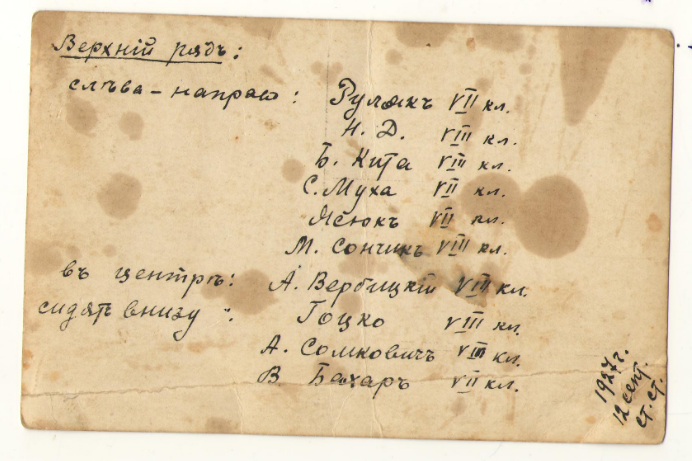 Верхній рядъ:
слѣва – направо: Рулякъ VII кл.
Н. Д. VIII кл.
Б. Кита VIII кл.
С. Муха VII кл.
Ясюкъ VII кл.
М. Сончикъ VIII кл.
въ центрѣ: А. Вербицкій VIII кл.
сидятъ внизу: Гоцко VIII кл.
А. Сомковичъ VIII кл.
В Бахаръ VII кл.
1927 г.
12 сент.
ст. ст.